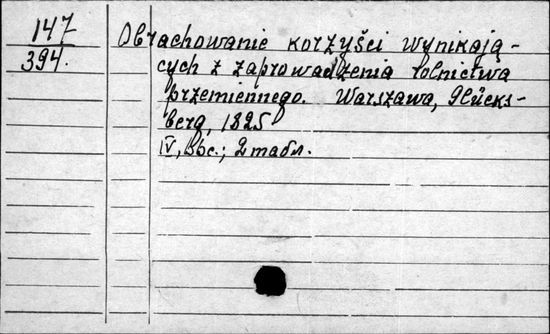 147
394.
Obrachowanie korzyści wynikają-
cych z zaprowadzenia rolnictwa
przemiennego. Warszawa, Glücks-
berg, 1825
IV, с.; 2 табл.